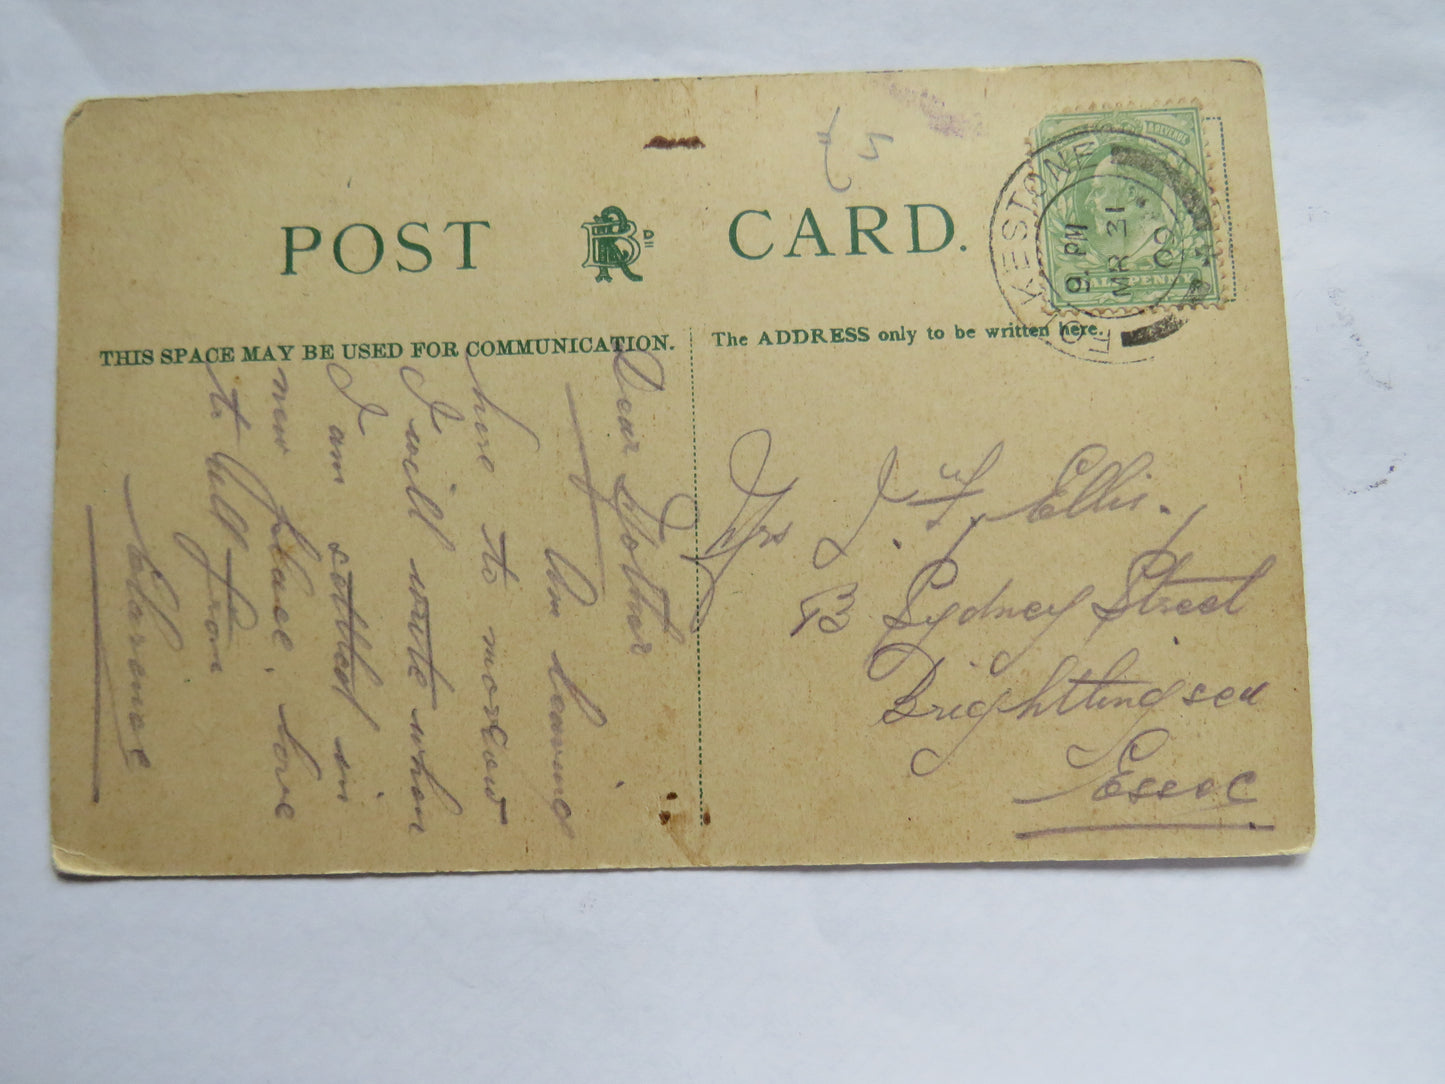 POST CARD.
THIS SPACE MAY BE USED FOR COMMUNICATION.
The ADDRESS only to be written here.
FOLKESTONE
9. PM
MR 31
09
REVENUE
HALFPENNY
Dear Mother
Am leaving
here to morrow
I will write when
I am settled in
new place. love
to all from
Clarence
Mrs J. F. Ellis.
13 Sydney Street
Brighttlingsea
Essex